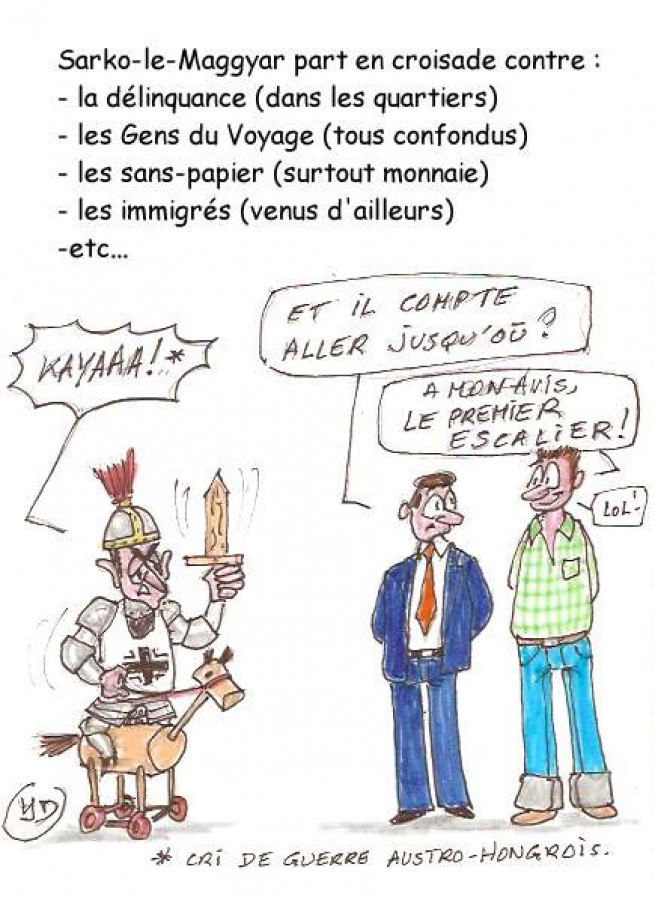 Sarko-le-Maggyar part en croisade contre :
- la délinquance (dans les quartiers)
- les Gens du Voyage (tous confondus)
- les sans-papier (surtout monnaie)
- les immigrés (venus d'ailleurs)
-etc...
ET IL COMPTE
ALLER JUSQU'OÙ ?
KAYAAA!..*
A MON AVIS,
LE PREMIER
ESCALIER !
LOL!
YD
* CRI DE GUERRE AUSTRO-HONGROIS.